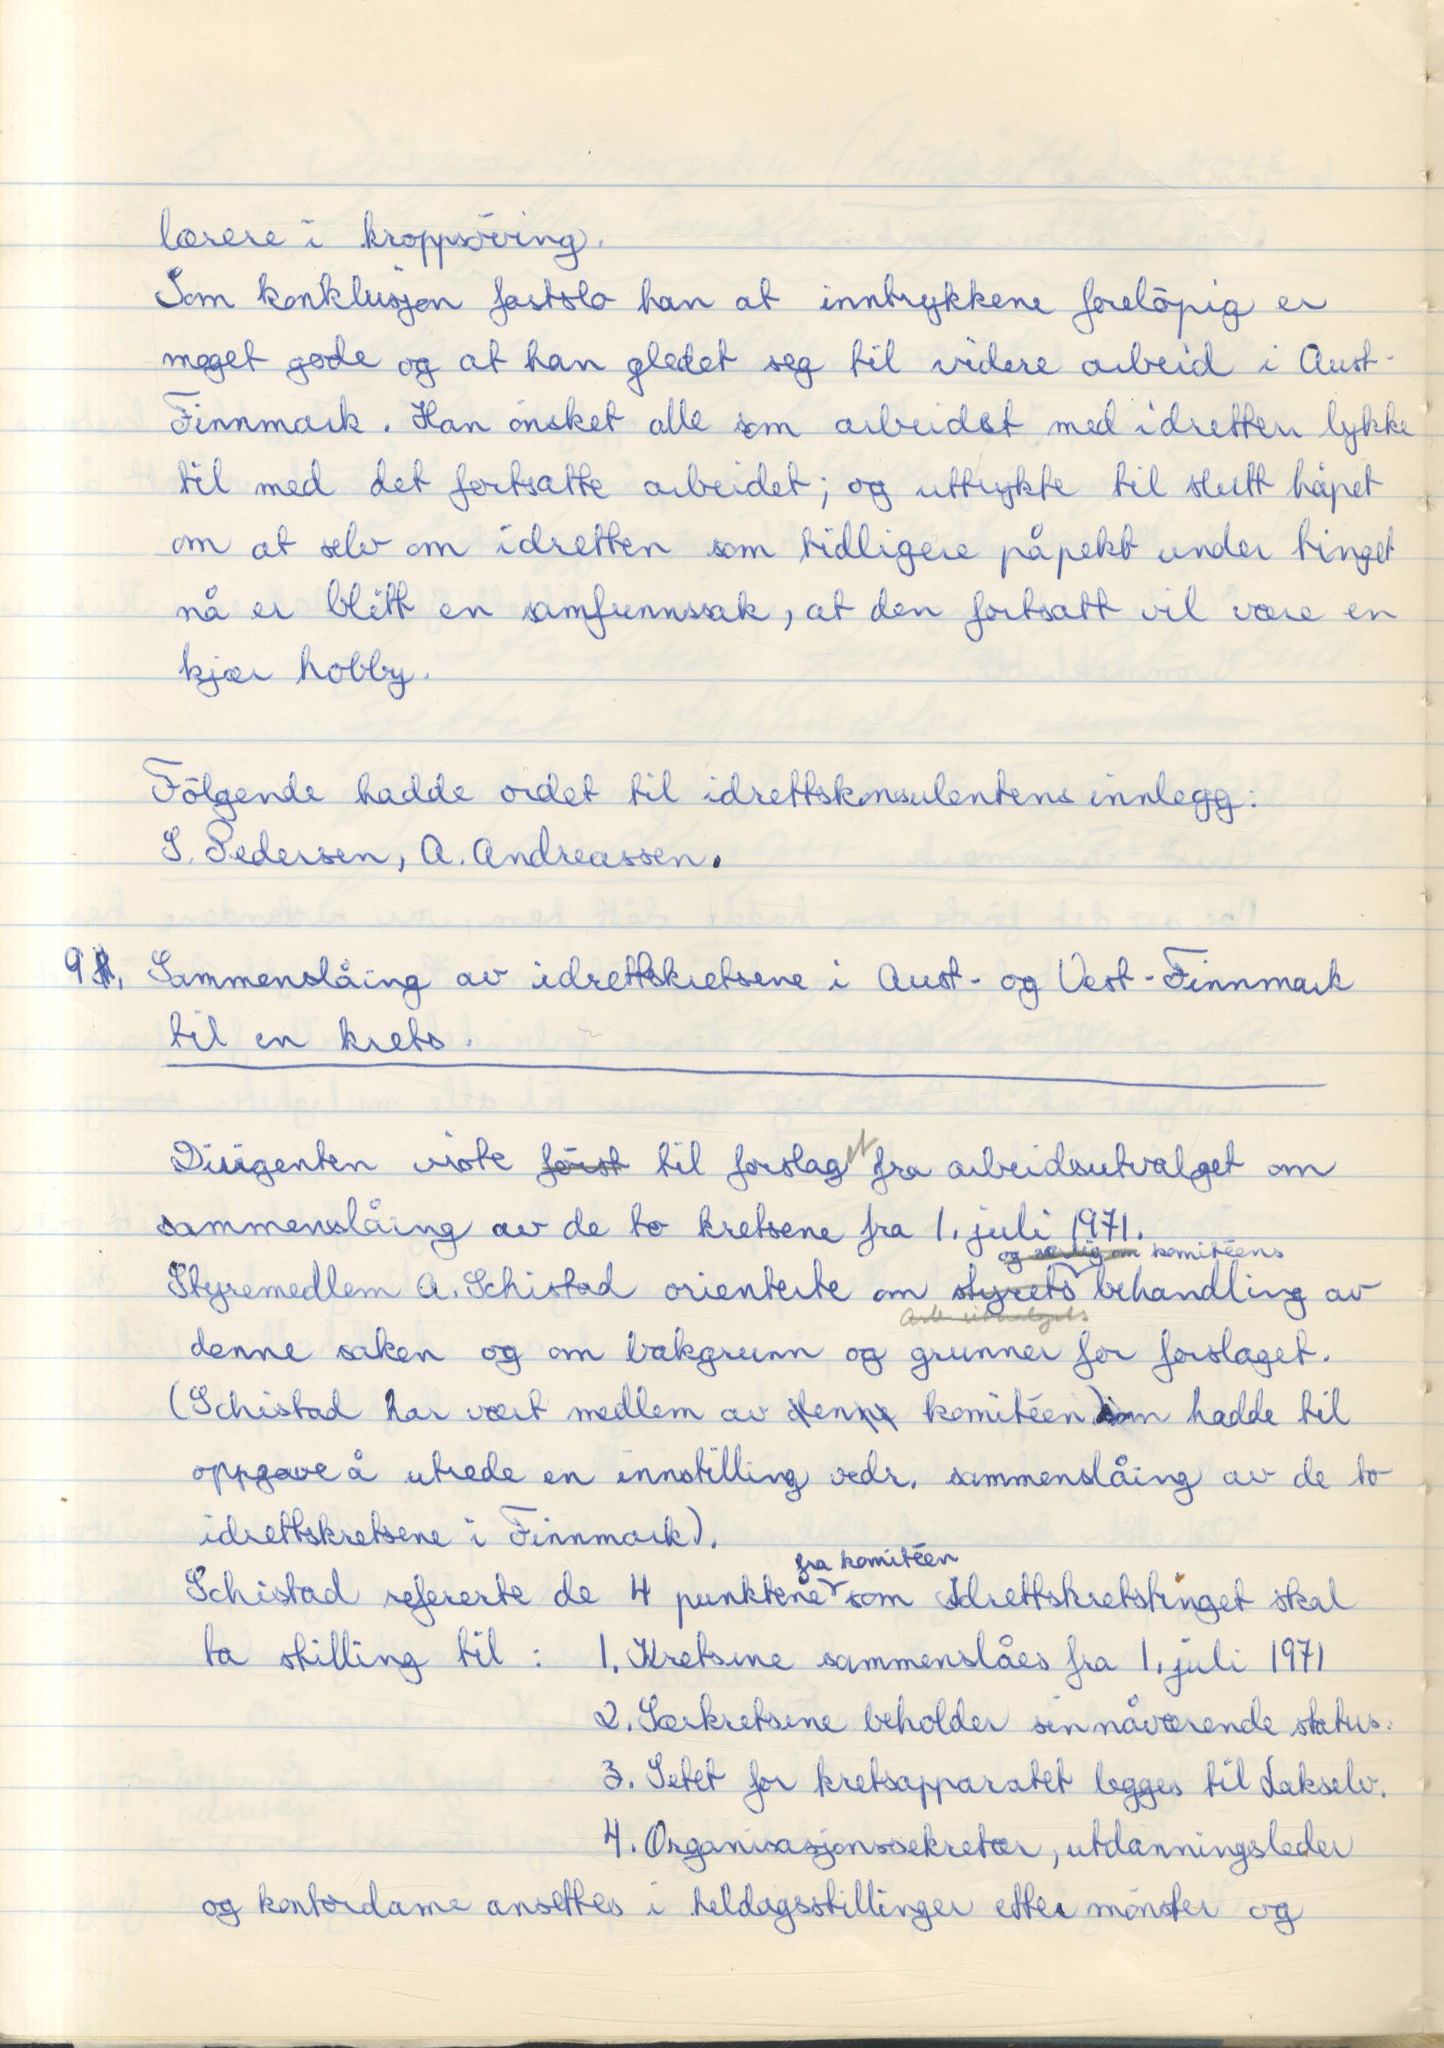 lærere i kroppsöving.
Som konklusjon fastslo han at inntrykkene forelöpig er
meget gode og at han gledet seg til videre arbeid i Aust-
Finnmark. Han önsket alle som arbeidet med idretten lykke
til med det fortsatte arbeidet; og uttrykte til slutt håpet
om at selv om idretten som tidligere påpekt under tinget
nå er blitt en samfunnssak, at den fortsatt vil være en
kjær hobby.
Fölgende hadde ordet til idrettskonsulentens innlegg:
S. Pedersen, A. Andreassen.
9. Sammenslåing av idrettskretsene i Aust- og Vest-Finnmark
til en krets.
Dirigenten viste först til forslaget fra arbeidsutvalget om
sammenslåing av de to kretsene fra 1. juli 1971.
og særlig om komitéens
Styremedlem A. Schistad orienterte om styrets behandling av
Arb.utvalgets
denne saken og om bakgrunn og grunner for forslaget.
(Schistad har vært medlem av denne komitéen) som hadde til
oppgave å utrede en innstilling vedr. sammenslåing av de to
idrettskretsene i Finnmark).
fra komitéen
Schistad refererte de 4 punktene som Idrettskretstinget skal
ta stilling til : 1. Kretsene sammenslåes fra 1. juli 1971
2. Særkretsene beholder sin nåværende status.
3. Setet for kretsapparatet legges til Lakselv.
4. Organisasjonssekretær, utdanningsleder
og kontordame ansettes i heldagsstillinger etter mönster og